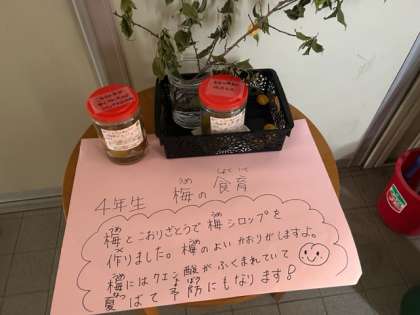 4年生 梅の食育
梅とこおりざとうで梅シロップを
作りました。梅のよいかおりがしますよ。
梅にはクエン酸がふくまれていて
夏ばて予防にもなります！